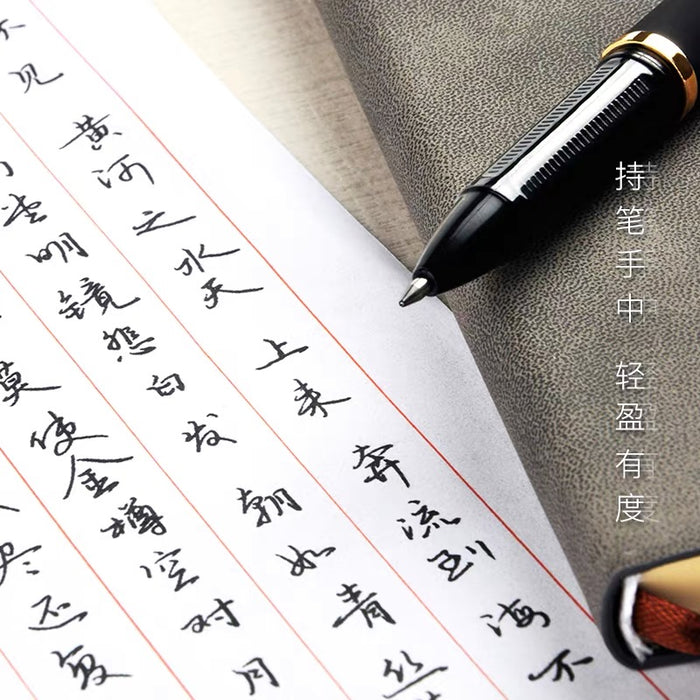 不见黄河之水天上来奔流到海不
堂明镜悲白发朝如青丝
莫使金樽空对月
尽还复
持笔手中 轻盈有度